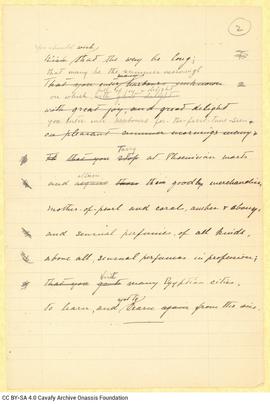 2
You should wish
Wish that the way be long;
that many be the summer mornings
That you enter harbours unknown
many
on which with great delight
with joy & delight
with great joy and great delight
you enter into harbours for the first time seen
on pleasant summer mornings many
tarry
that you stop at Phoenician marts
obtain
and acquire them goodly merchandise,
mother-of-pearl and coral, amber & ebony,
and sensual perfumes of all kinds,
above all, sensual perfumes in profusion;
visit
that you go to many Egyptian cities,
yet to
to learn, and learn again from the wise.
CC BY-SA 4.0 Cavafy Archive Onassis Foundation